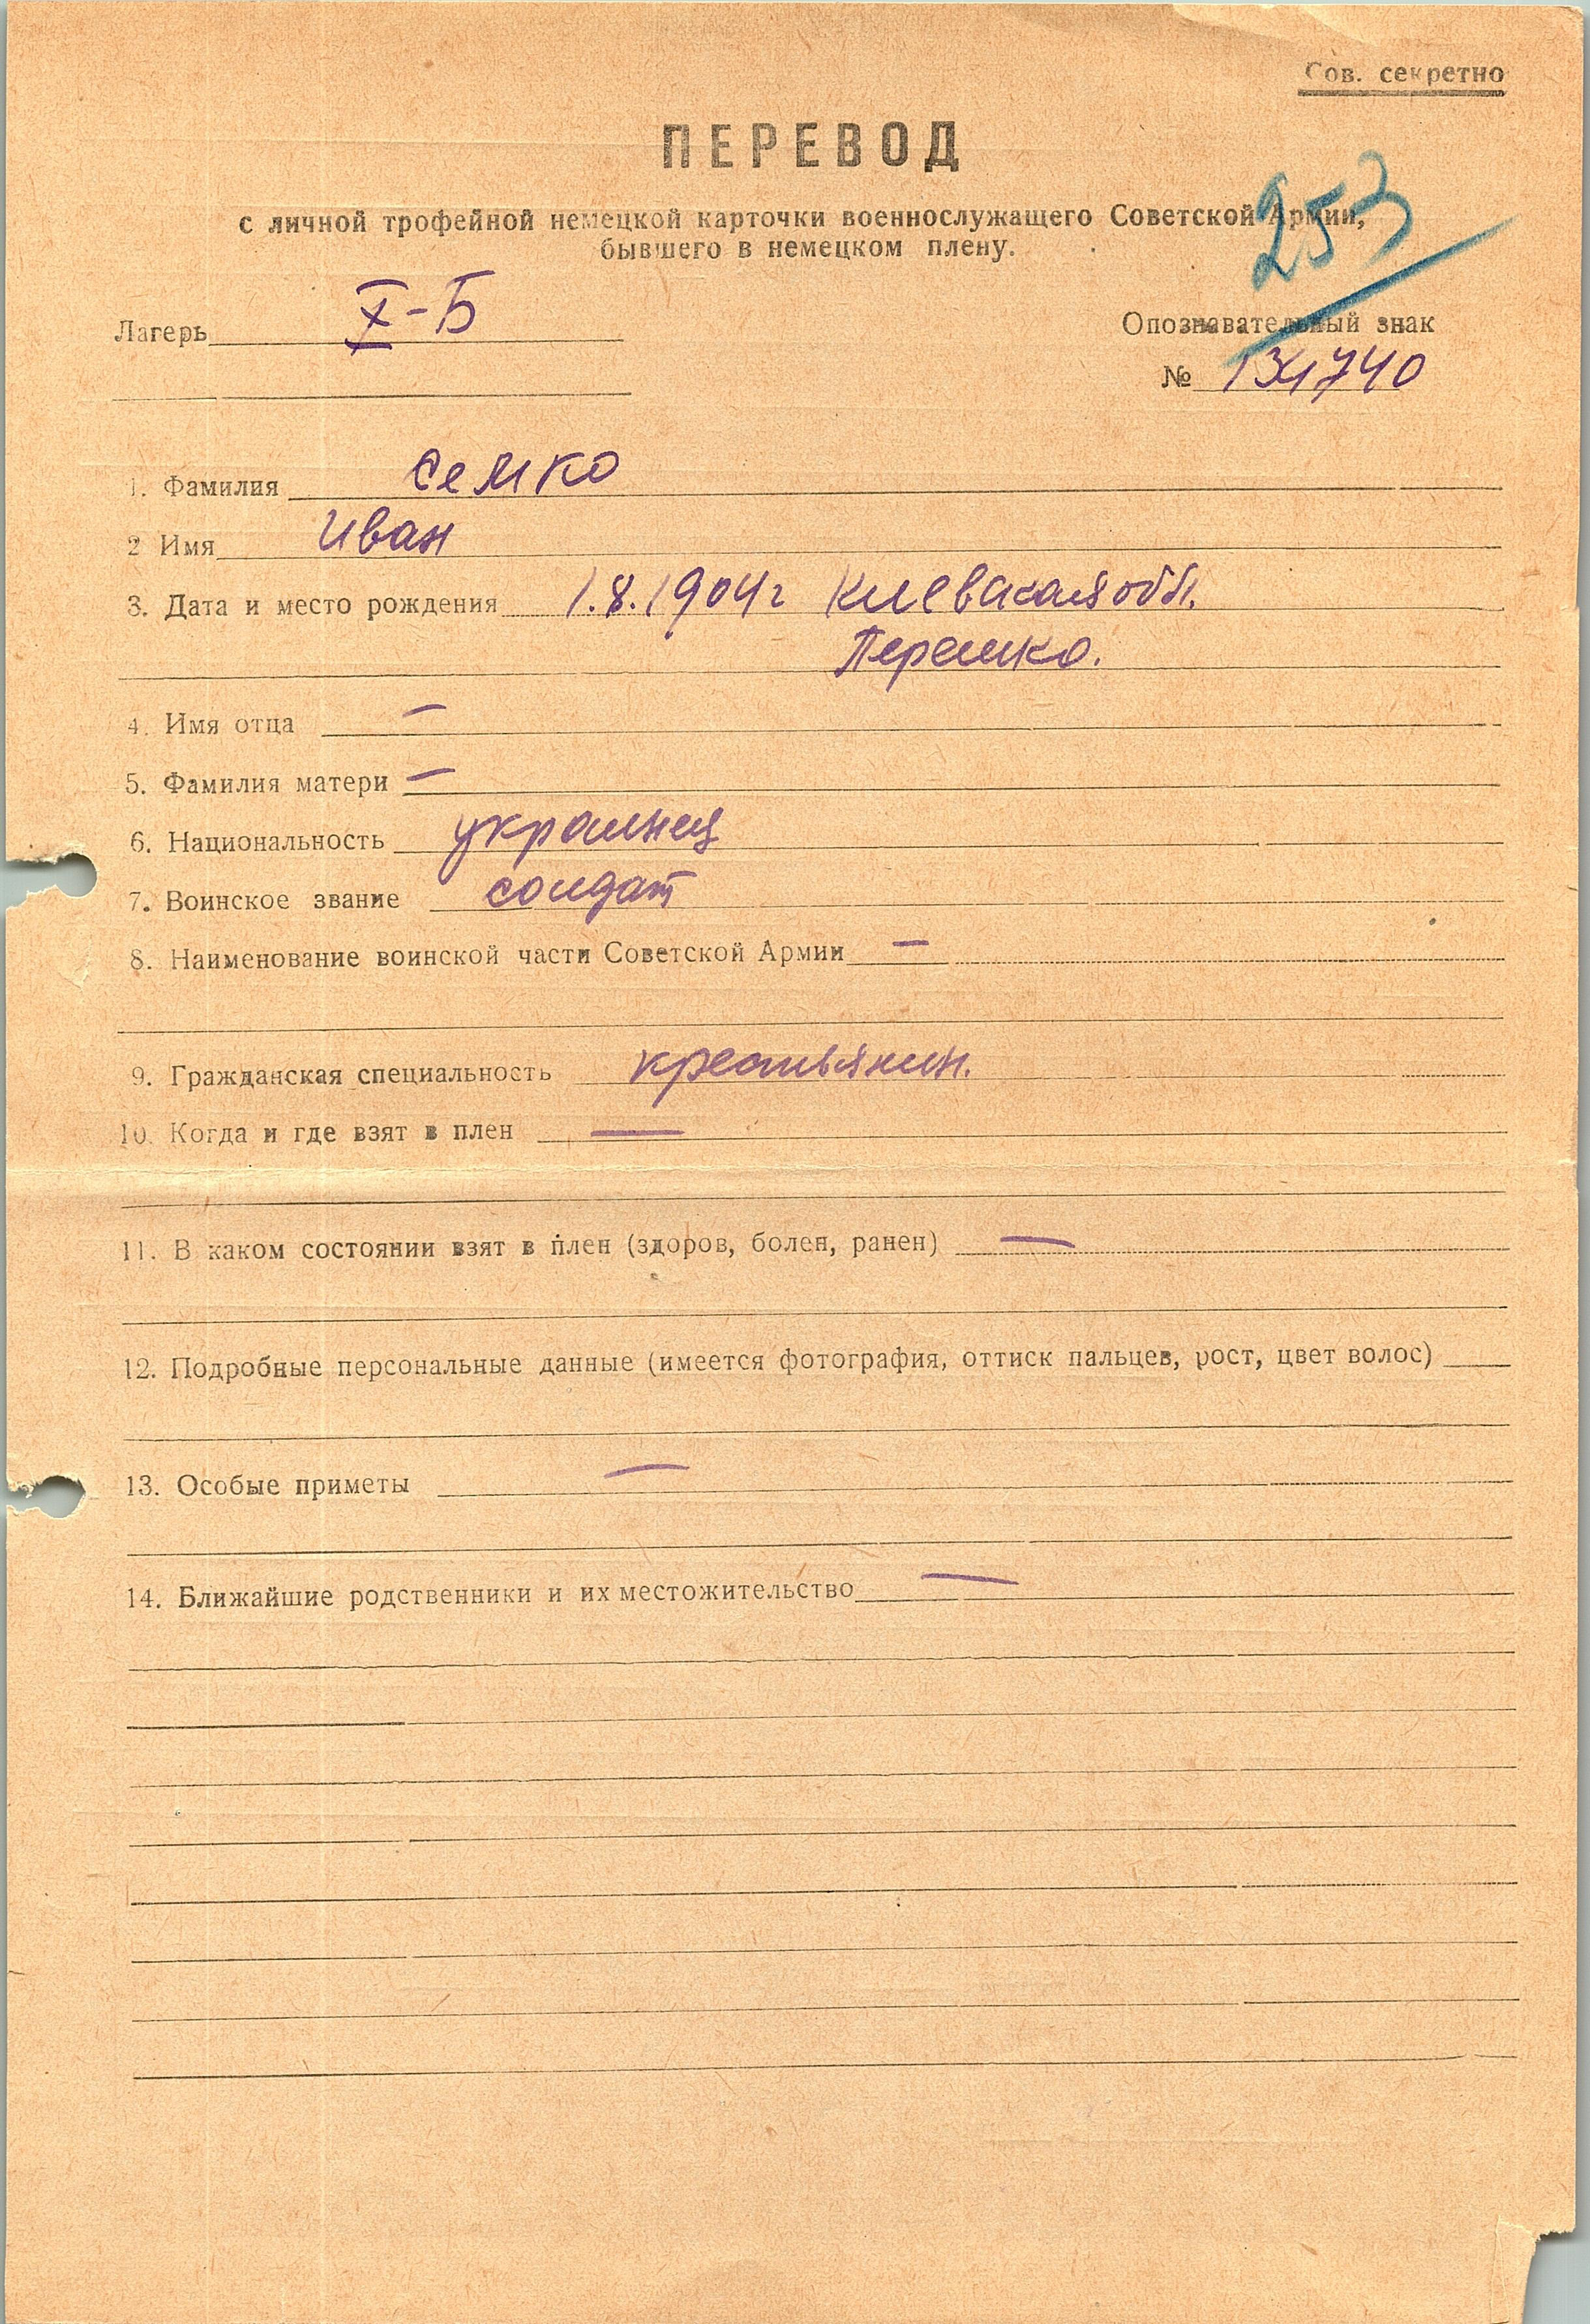 Сов. секретно
ПЕРЕВОД
с личной трофейной немецкой карточки военнослужащего Советской Армии,
бывшего в немецком плену.
253
Лагерь X-Б
Опознавательный знак
№ 134740
1. Фамилия Семко
2 Имя Иван
3. Дата и место рождения 1.8.1904г Киевская обл.
4. Имя отца —
5. Фамилия матери —
6. Национальность украинец
7. Воинское звание солдат
8. Наименование воинской части Советской Армии —
9. Гражданская специальность крестьянин.
10. Когда и где взят в плен —
11. В каком состоянии взят в плен (здоров, болен, ранен) —
12. Подробные персональные данные (имеется фотография, оттиск пальцев, рост, цвет волос)
13. Особые приметы —
14. Ближайшие родственники и их местожительство —